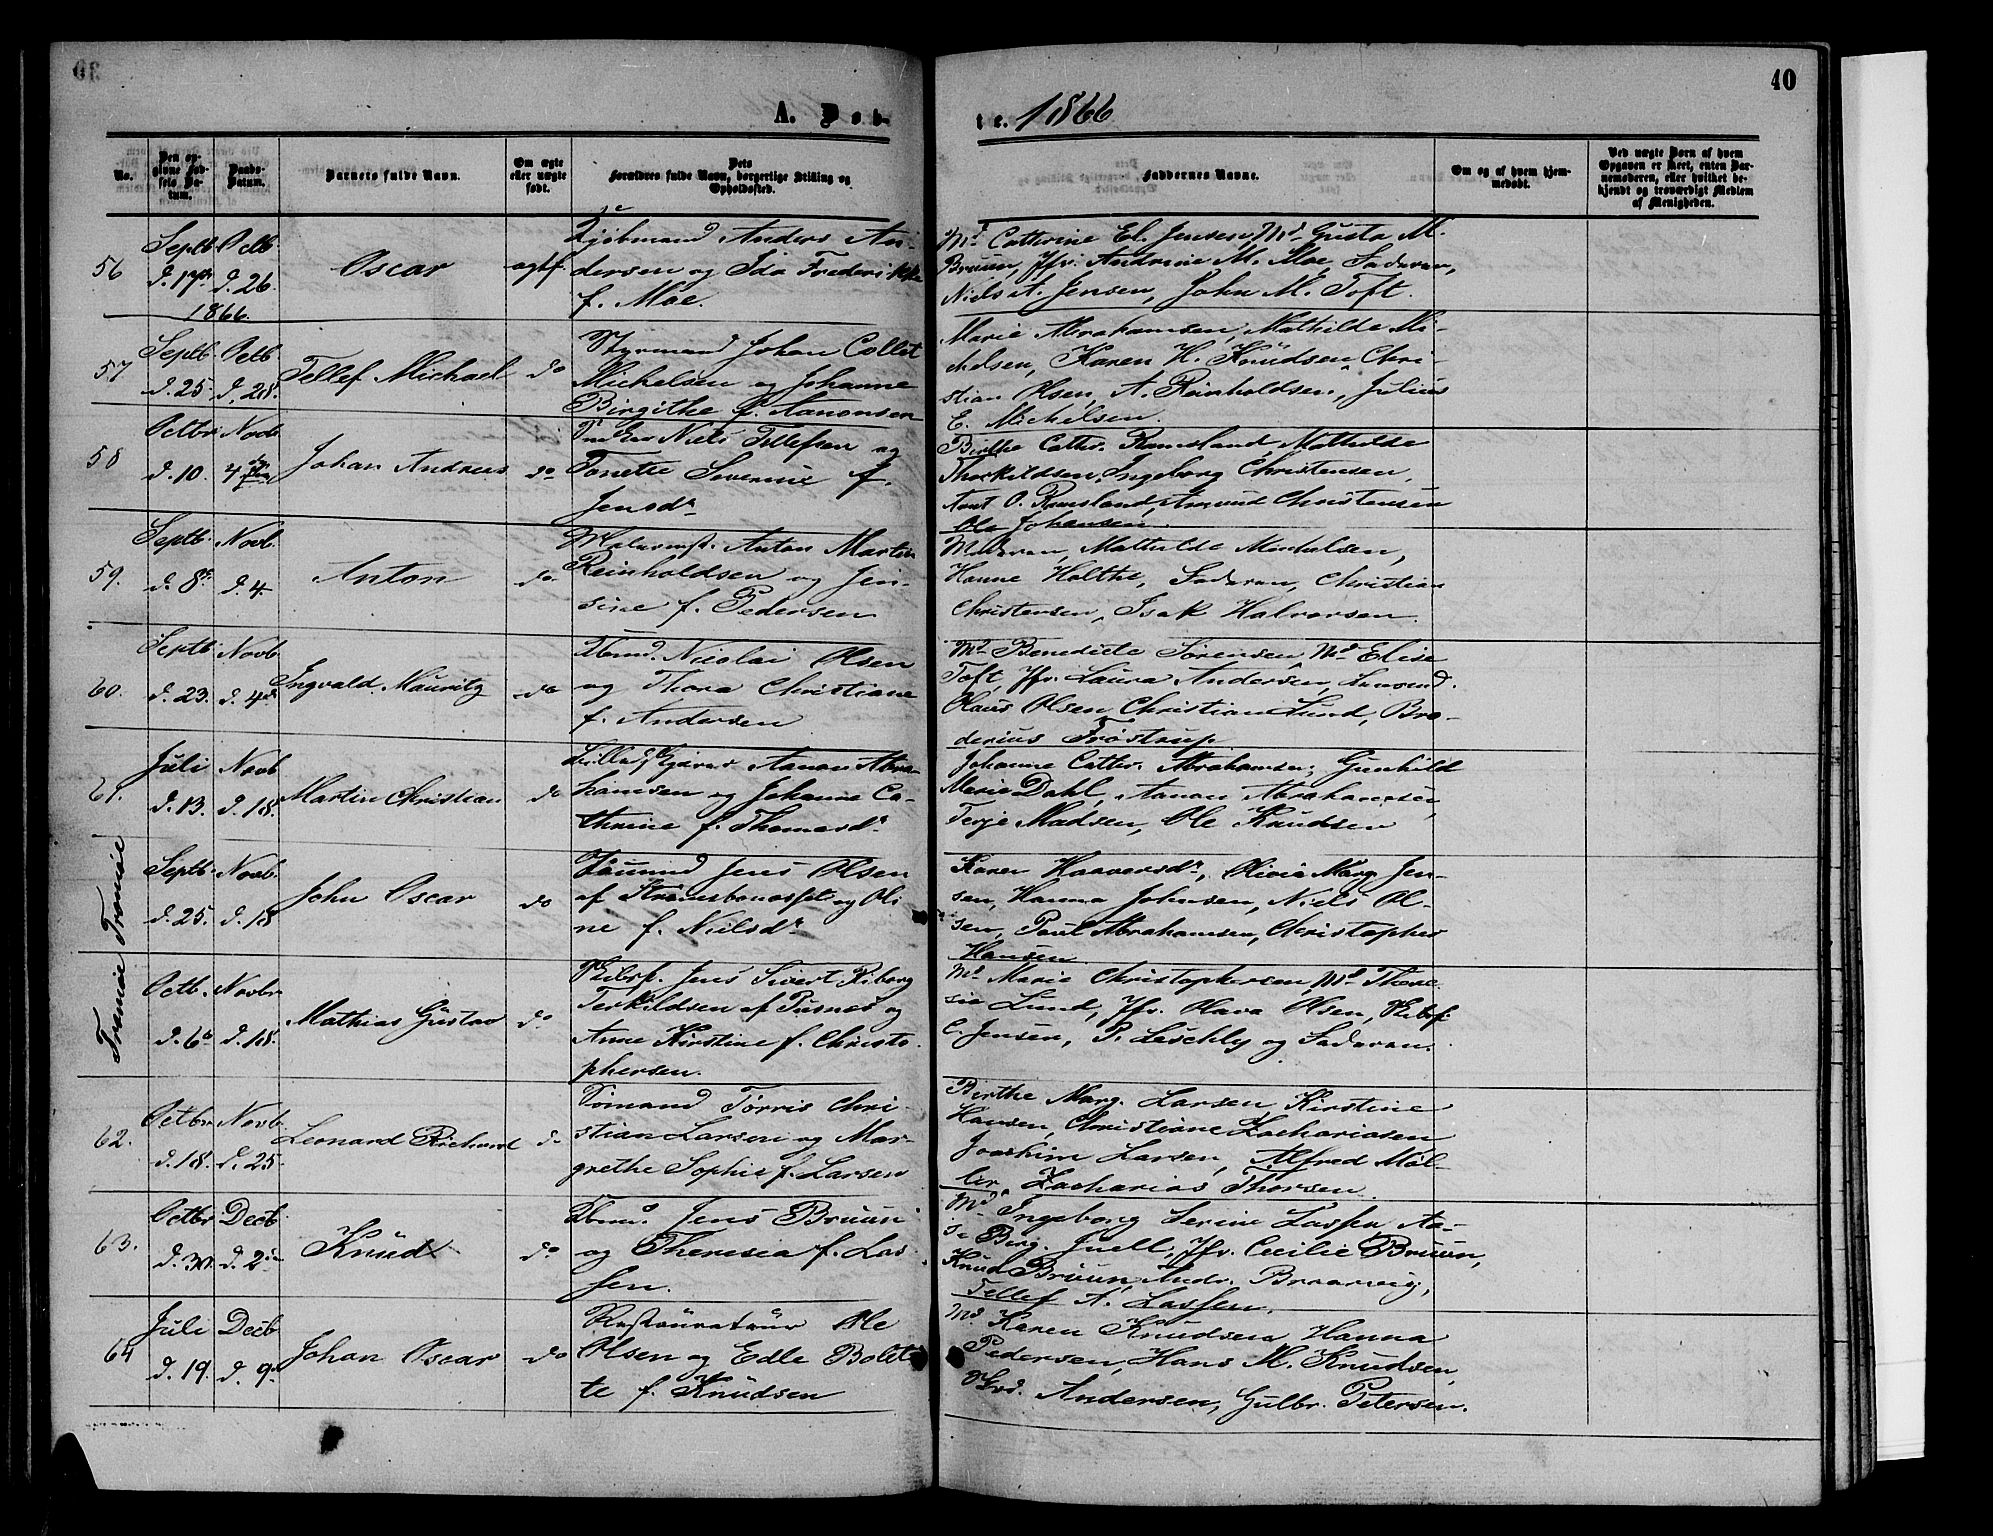 40
A. Døb-
te. 1866
No.
Den op-
givne Fød-
sels Da-
tum.
Daabs-
Datum.
Barnets fulde Navn.
Om ægte
eller uægte
født.
Dets
Forældres fulde Navn, borgerlige Stilling og
Opholdssted.
Faddernes Navne.
Om og af hvem hjem-
medøbt.
Ved uægte Børn af hvem
Opgaven er skeet, enten Bar-
nemoderen, eller hvilket be-
kjendt og troværdigt Medlem
af Menigheden.
56
Septb. Octb.
d. 17 d. 26.
1866.
Oscar
ægtf.
Kjøbmand Anders An-
dersen og Ida Frederikke
f. Moe.
Md. Cathrine El. Jensen, Md. Gusta M.
Bruun, Jfr. Andrine M. Moe, Faderen,
Niels A. Jensen, John M. Toft.
57
Septb. Octb.
d. 25. d. 28.
Tellef Michael
do
Styrmand Johan Collet
Michelsen og Johanne
Birgithe f. Aanonsen
Marie Abrahamsen, Mathilde Mi-
chelsen, Karen H. Knudsen, Chri-
stian Olsen, A. Reinholdsen, Julius
E. Michelsen.
58
Octbr Novb.
d. 10. 4
Johan Andreas
do
Niels Tellefsen og
Tonette Severine f.
Jensdr
Birthe Cathr. Ramsland, Mathilde
Thorkildsen, Ingeborg Christensen,
O. Ramsland, Amund Christensen
Ole Johansen.
59.
Septb. Novb.
d. 8 d. 4.
Anton
do.
Malermst. Anton Martin
Reinholdsen og Jen-
sine f. Pedersen
Moderen, Mathilde Michelsen,
Hanne Holthe, Faderen, Christian
Christensen, Isak Halvorsen.
60.
Septb. Novb.
d. 23. d. 4
Ingvald Mauritz
do
Nicolai Olsen
og Thora Christiane
f. Andersen
Md. Benedicte Sørensen Md. Elise
Toft, Jfr. Laura Andersen,
Olaus Olsen Christian Lund, Bro-
derius Trøstrup
61.
Juli Novb
d. 13. d. 18.
Martin Christian
do
Aanon Abra-
hamsen og Johanne Ca-
thrine f. Thomasdr.
Johanne Cathr. Abrahamsen, Gunhild
Marie Dahl, Aanon Abrahamsen,
Terje Madsen, Ole Knudsen
Tromöe
Septb. Novb.
d. 25. d. 18
John Oscar
do
Sömand Jens Olsen
af Strömsbunæsset og Oli
ne f. Nielsdr
Karen Haavorsdr, Olivia Marg. Jen-
sen, Hanna Johnsen, Niels Ol-
sen, Paul Abrahamsen, Christopher
Hansen
Tromöe
Octb. Novbr
d. 6 d. 18.
Mathias Gustav
do
Skibsf. Jens Sivert Riborg
Terkildsen af Pusnes og
Anne Kirstine f. Christo
phersen.
Md. Marie Christophersen Md. There-
sie Lund, Jfr. Olava Olsen, Skibsf.
C. Jensen, P. Leschly og Faderen.
62.
Octbr Novb.
d. 18. d. 25
Leonard Richard
do
Sömand Törris Chri-
stian Larsen og Mar-
grethe Sophie f. Larsen
Birthe Marg. Larsen, Kirstine
Hansen, Christiane Zachariasen
Joachim Larsen, Alfred Möl-
ler, Zacharias Thorsen.
63.
Octbr Decb
d. 30. d. 2
Knud
do
Jens Bruun
og Theresia f. Las-
sen.
Md Ingeborg Serine Lassen Aa-
se Berg. Juell, Jfr. Cecilie Bruun,
Knud Bruun, Andr. Braarvig,
Tellef A. Lassen.
64
Juli Decb
d. 19. d. 9
Johan Oscar
do
Restaurateur Ole
Olsen og Edle Bolet-
te f. Knudsen
Md Karen Knudsen, Hanna
Pedersen, Hans M. Knudsen,
Andersen, Gulbr. Petersen.